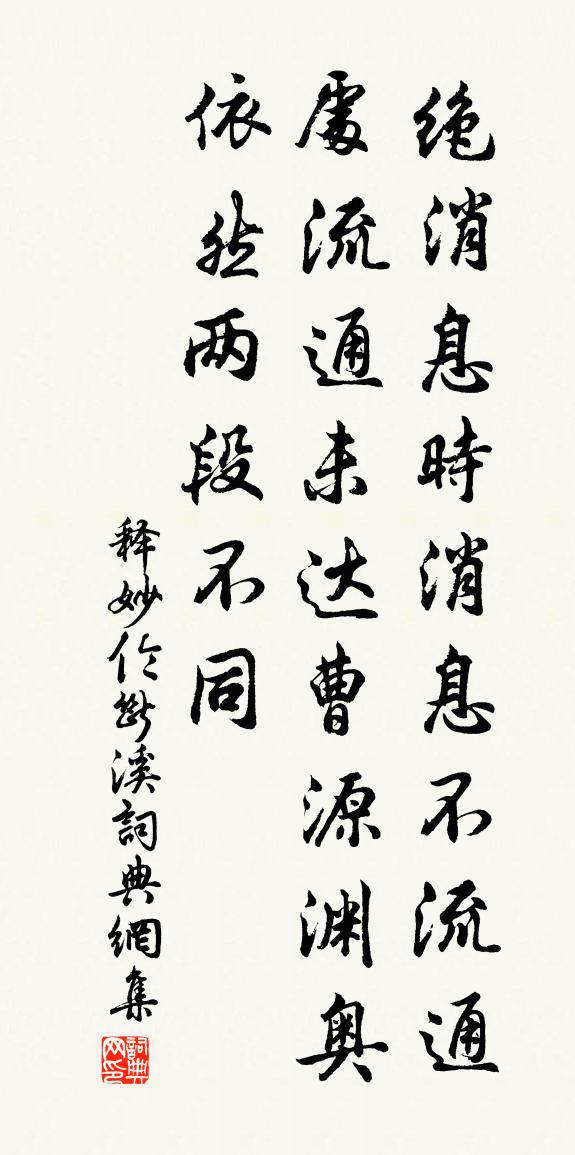 绝消息時消息不流通
處流通未达曹源渊奥
依然两段不同
释妙伦断溪詞典網集
詞典网印